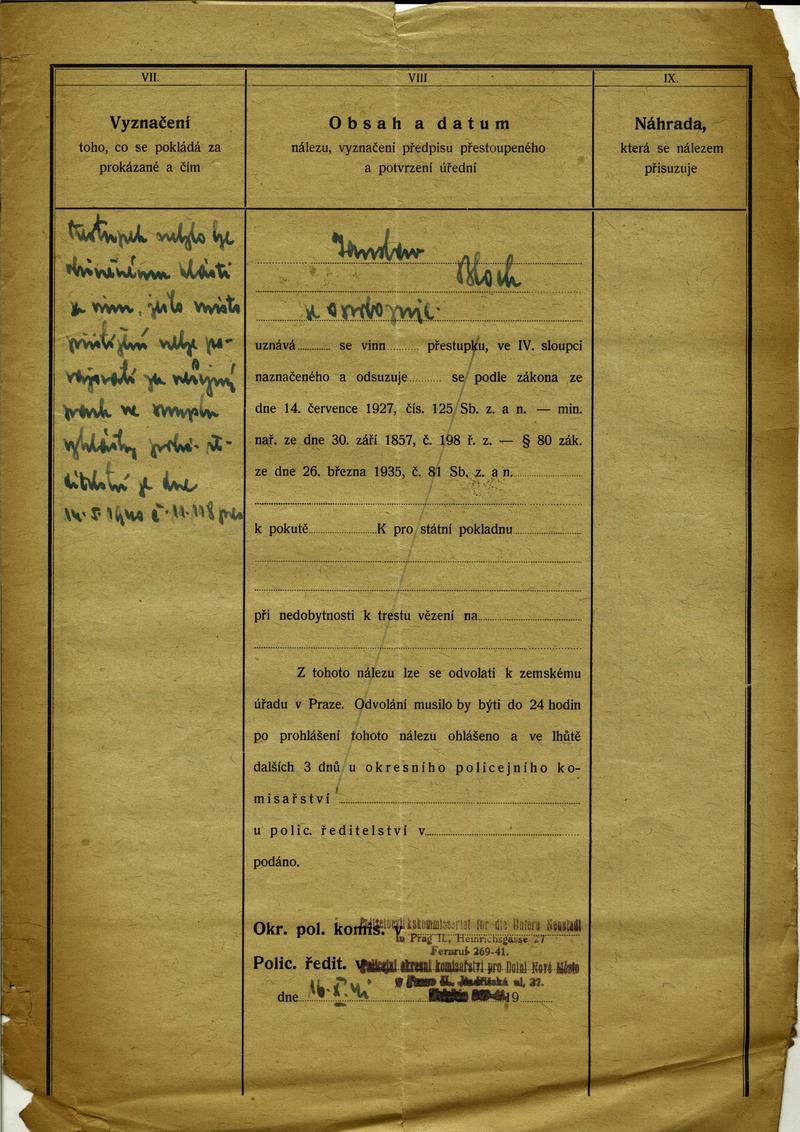 VII.
Vyznačení
toho, co se pokládá za
prokázané a čím
VIII.
Obsah a datum
nálezu, vyznačení předpisu přestoupeného
a potvrzení úřední
IX.
Náhrada,
která se nálezem
přisuzuje
Přestupek nebylo lze
obviněnému klásti
za vinu, místo
nelze po-
za veřejný
ve smyslu
vyhlášky ře-
ditelství ze dne
14. 5. 1940 č.
Bloch
uznává se vinn přestupku, ve IV. sloupci
naznačeného a odsuzuje se podle zákona ze
dne 14. července 1927, čís. 125 Sb. z. a n. — min.
nař. ze dne 30. září 1857, č. 198 ř. z. — § 80 zák.
ze dne 26. března 1935, č. 81 Sb. z. a n.
k pokutě K pro státní pokladnu
při nedobytnosti k trestu vězení na
Z tohoto nálezu lze se odvolati k zemskému
úřadu v Praze. Odvolání musilo by býti do 24 hodin
po prohlášení tohoto nálezu ohlášeno a ve lhůtě
dalších 3 dnů u okresního policejního ko-
misařství
u polic. ředitelství v
podáno.
Okr. pol. komis. v
für die Untere Neustadt
in Prag II., Heinrichsgasse 27
Fernruf 269-41.
Polic. ředit. v
Policejní okresní komisařství pro Dolní Nové Město
v Praze II., Jindřišská ul. 27.
dne 19